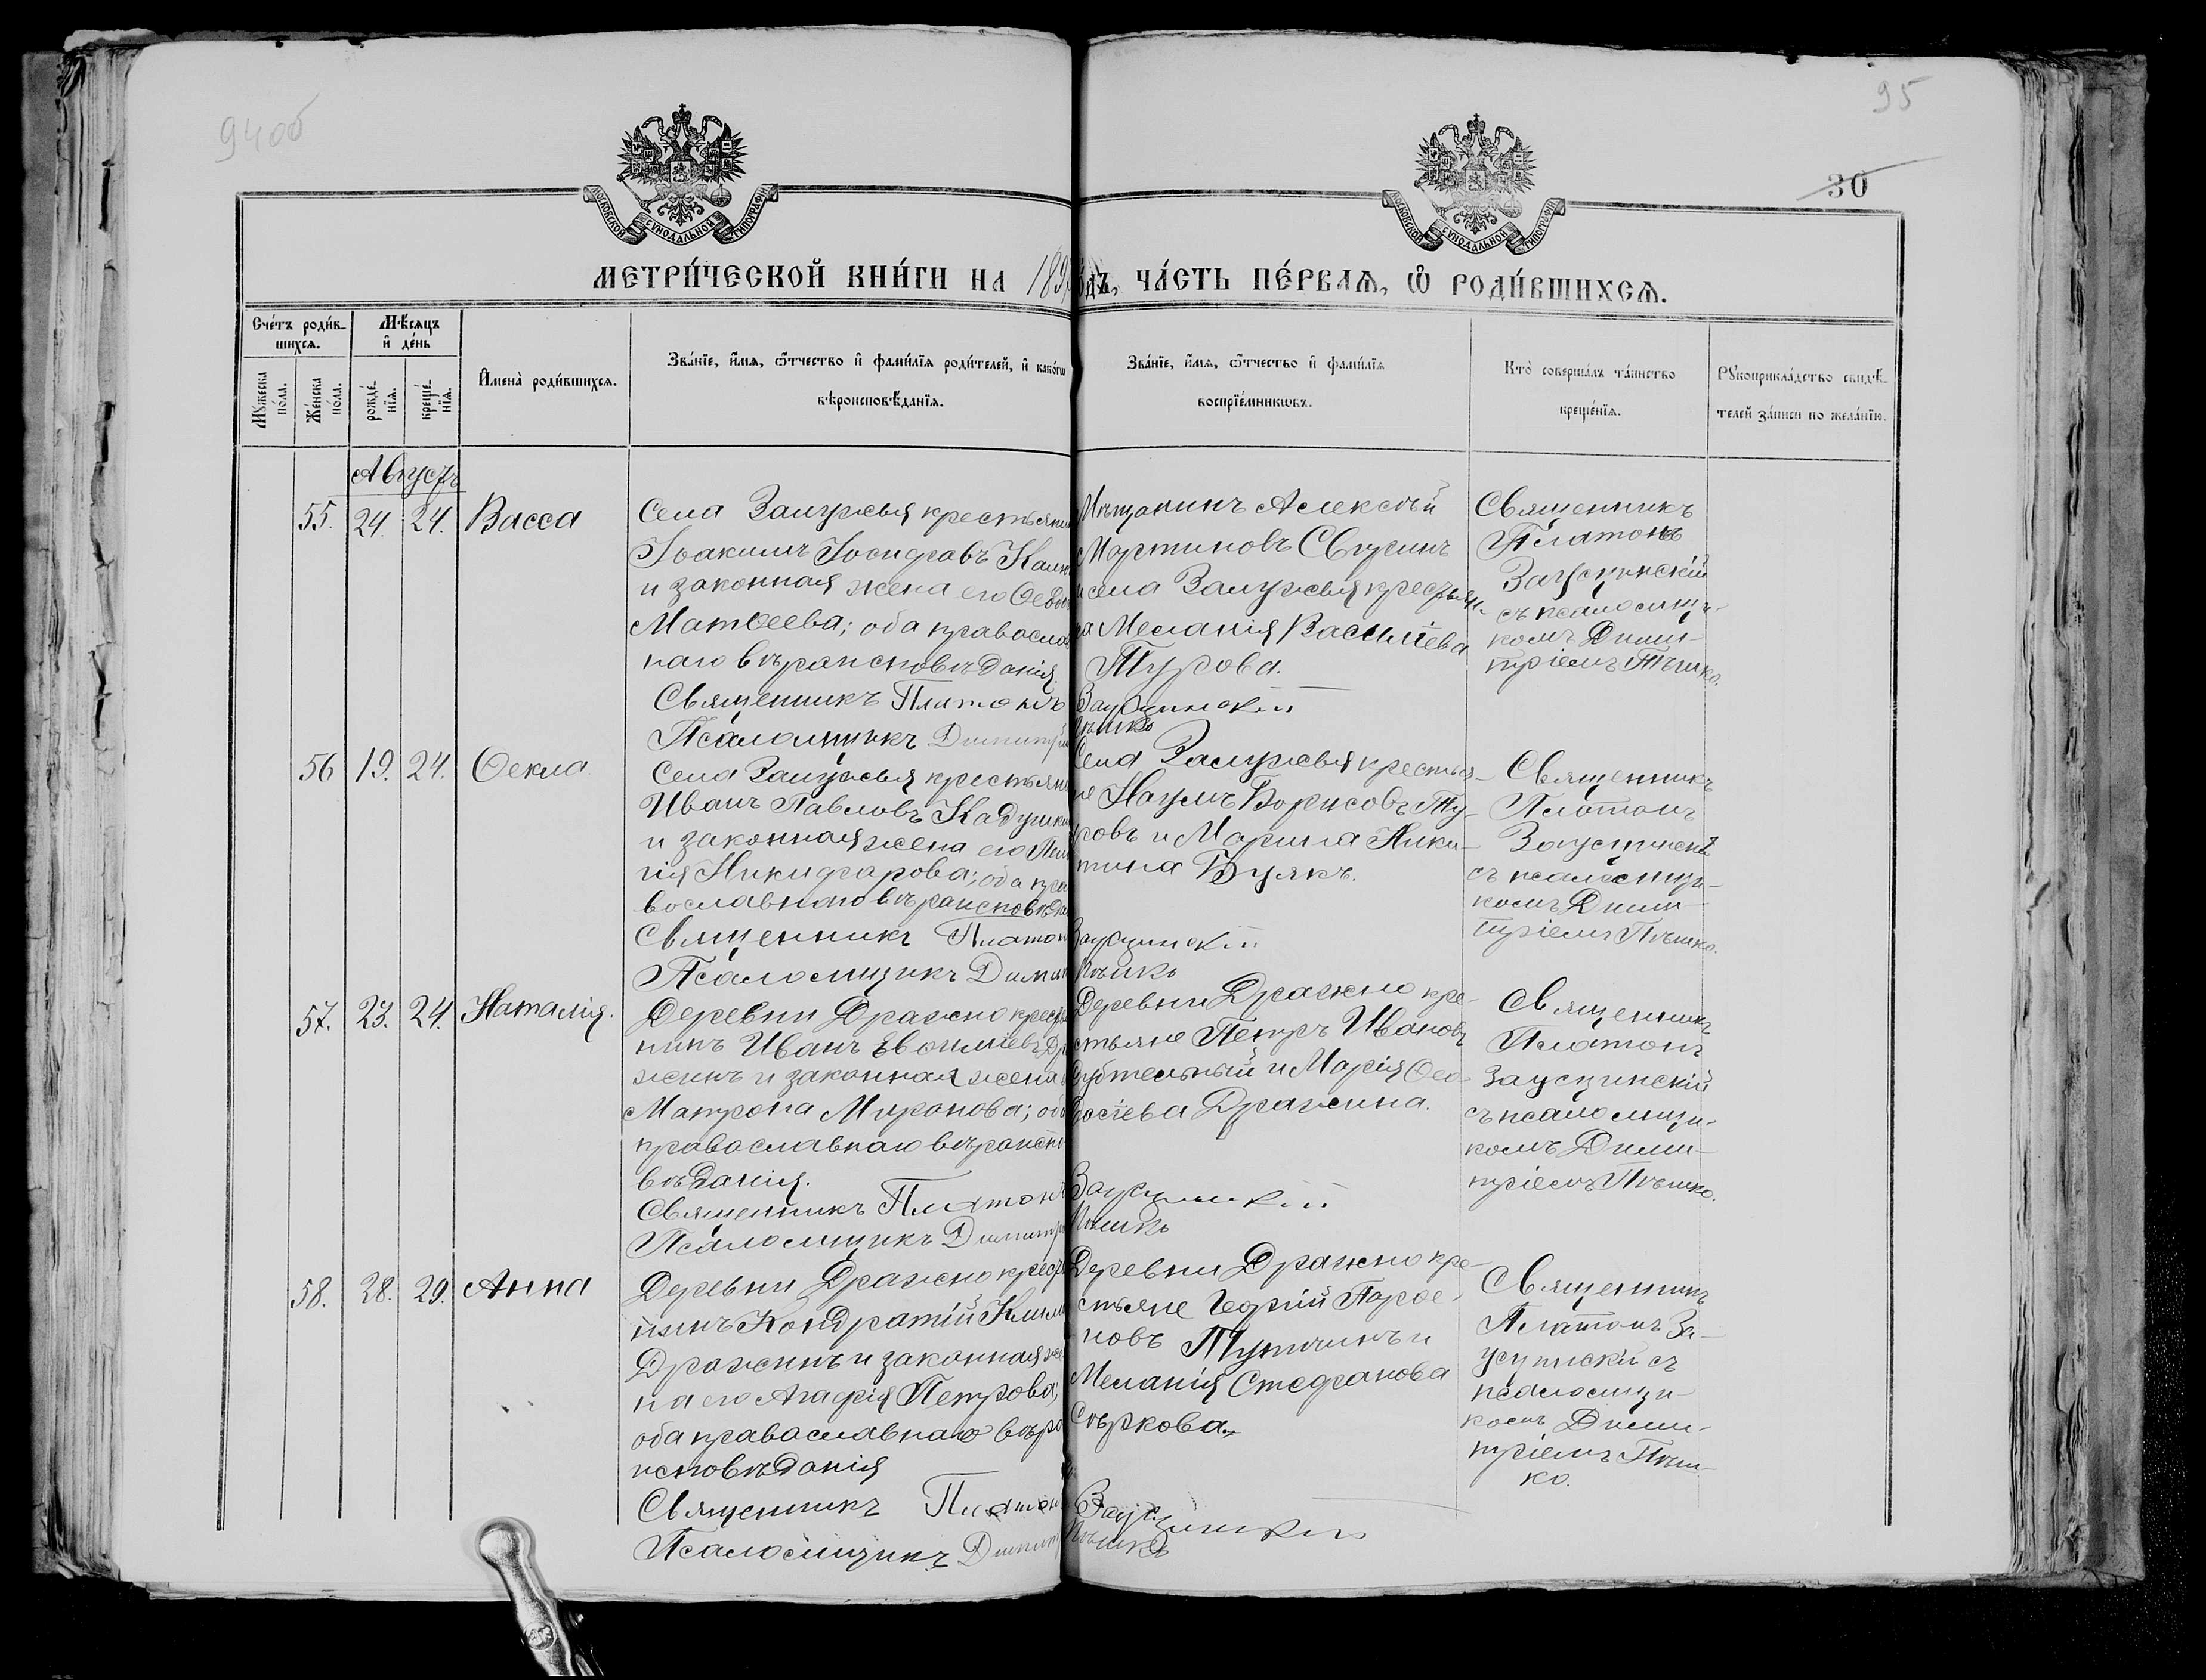 94об
95
30
МОСКОВСКОЙ СУНОДАЛЬНОЙ ТИПОГРАФІИ
МОСКОВСКОЙ СУНОДАЛЬНОЙ ТИПОГРАФІИ
МЕТРИ́ЧЕСКОЙ КНИ́ГИ НА 189
ЧА́СТЬ ПЕ́РВАЯ, Ѽ РОДИ́ВШИХСЯ.
Сче́тъ роди́в-
шихся.
Мѣ́сяцъ
и҆ де́нь
Мꙋ́жеска
по́ла.
Же́нска
по́ла.
рожде́-
нїя.
креще́-
нїя.
И҆мена̀ роди́вшихся.
Зва́нїе, и҆́мя, ѻ҆́тчество и҆ фами́лїя роди́телей, и҆ како́гѡ
вѣроисповѣ́данїя.
Зва́нїе, и҆́мя, ѻ҆́тчество и҆ фами́лїя
воспрїе́мникѡвъ.
Кто̀ соверша́лъ та́инство
креще́нїя.
Рꙋкоприкла́дство свидѣ́-
телей за́писи по жела́нїю.
Августъ
55. 24. 24. Васса
Села Залужья крестьянин
Іоакимъ Іосифовъ
и законная жена его
Матѳеева; оба православ
наго вѣроисповѣданія.
Священникъ Платонъ
Псаломщикъ Димитрій
Мѣщанинъ Алексѣй
Мартиновъ
и села Залужья крестьян-
ка Меланія Василіева
Турова.
Заусцинскій
Пѣшко
Священникъ
Платонъ
Заусцинскій
съ псаломщи-
комъ Дими-
тріемъ Пѣшко.
56 19. 24. Ѳекла.
Села Залужья крестьяни
Иванъ Павловъ Кадушки
и законная жена его Пела
гія Никифорова; оба пра
вославнаго вѣроисповѣда
Священникъ Платон
Псаломщикъ Димит
Села Залужья крестья-
не Наумъ Борисовъ Ту-
ровъ и Марина Ники-
тина Буякъ.
Заусцинскій
Пѣшко
Священникъ
Платонъ
Заусцинскій
съ псаломщи-
комъ Дими-
тріемъ Пѣшко.
57. 23. 24. Наталія.
Деревни Дражно крестья
нинъ Иванъ Дра
жинъ и законная жена
Матрона Миронова; оба
православнаго вѣроиспо
вѣданія.
Священникъ Платонъ
Псаломщикъ Димитр
Деревни Дражно кре-
стьяне Петръ Ивановъ
и Марія Ѳео-
досіева Дражина.
Заусцинскій
Пѣшко
Священникъ
Платонъ
Заусцинскій
съ псаломщи-
комъ Дими-
тріемъ Пѣшко.
58. 28. 29. Анна
Деревни Дражно крестья
нинъ Кондратій Клим
Дражинъ и законная же
на его Агафія Петрова;
оба православнаго вѣро
исповѣданія
Священникъ Платон
Псаломщикъ Димитр
Деревни Дражно кре-
стьяне Георгій Парфе-
новъ и
Меланія Стефанова
Сѣркова.
Заусцинскій
Пѣшко
Священникъ
Платонъ За-
усцинскій съ
псаломщи-
комъ Дими-
тріемъ Пѣш-
ко.